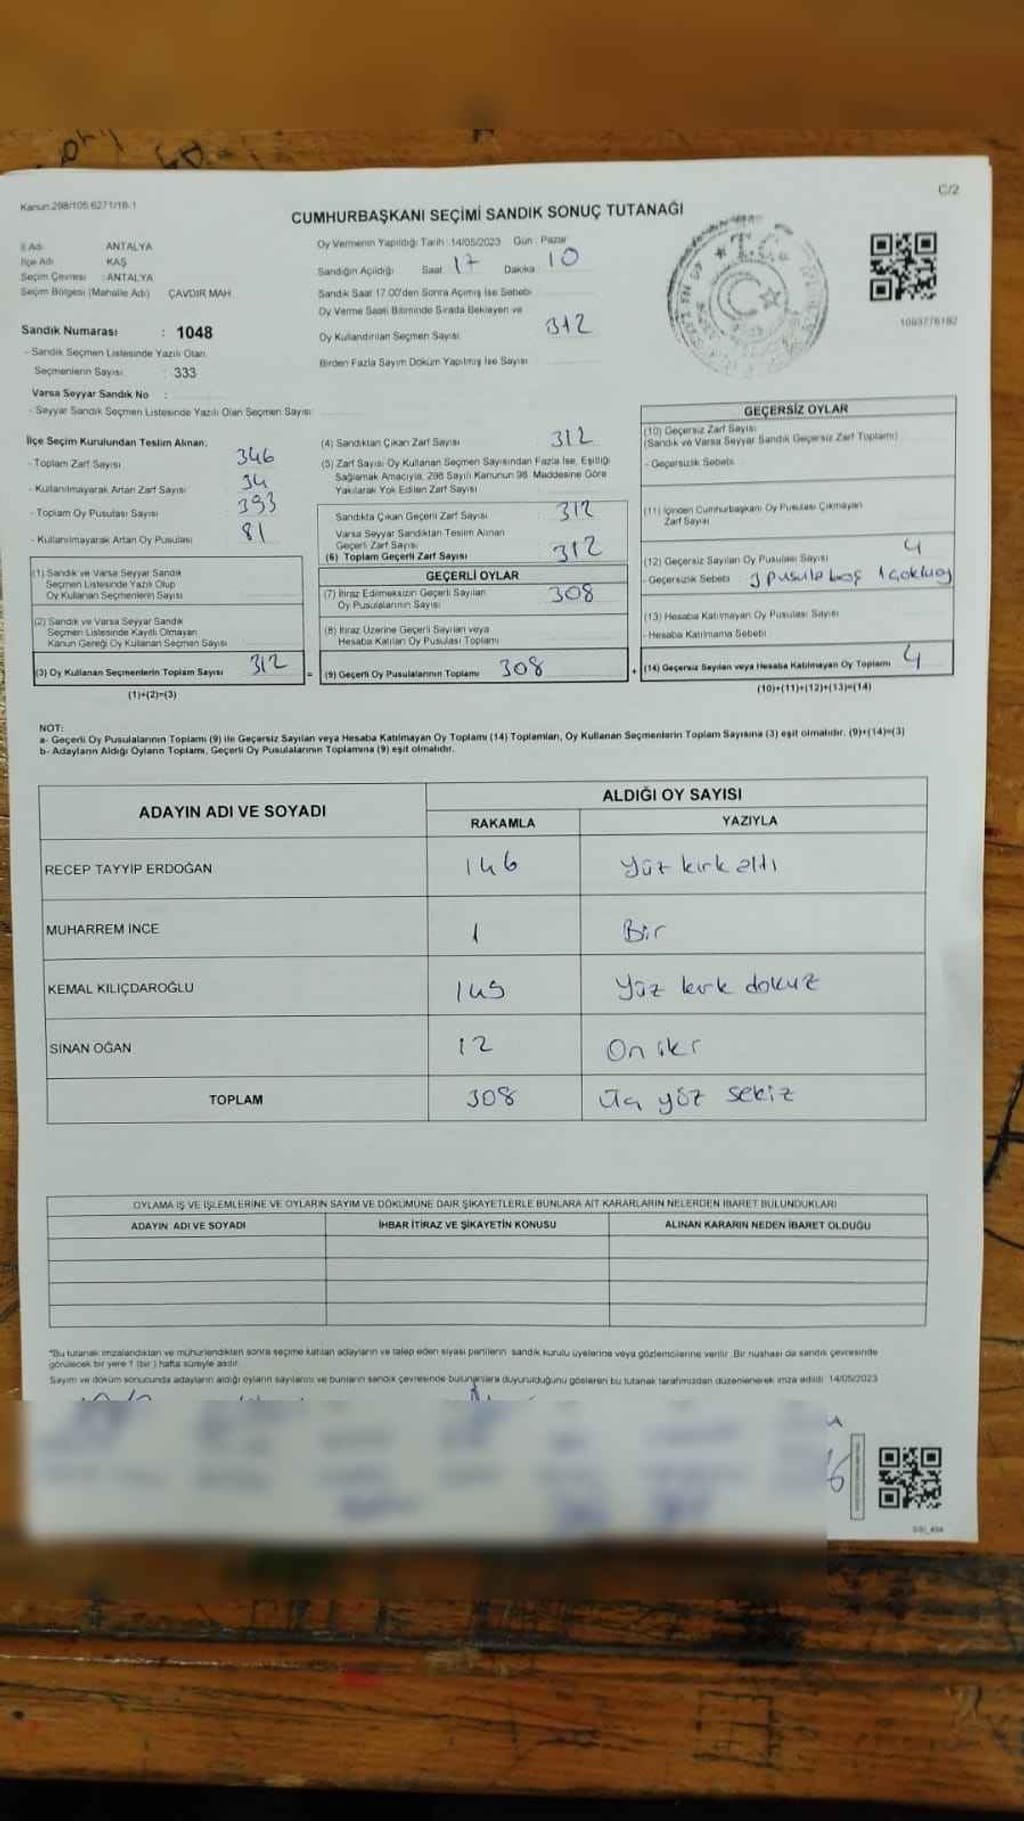 C/2
Kanun:298/105 6271/18-1
CUMHURBAŞKANI SEÇİMİ SANDIK SONUÇ TUTANAĞI
İl Adı ANTALYA
İlçe Adı KAŞ
Seçim Çevresi : ANTALYA
Seçim Bölgesi (Mahalle Adı) ÇAVDIR MAH.
Sandık Numarası : 1048
- Sandık Seçmen Listesinde Yazılı Olan
Seçmenlerin Sayısı : 333
Varsa Seyyar Sandık No :
- Seyyar Sandık Seçmen Listesinde Yazılı Olan Seçmen Sayısı:
Oy Vermenin Yapıldığı Tarih : 14/05/2023 Gün : Pazar
Sandığın Açıldığı Saat 17 Dakika 10
Sandık Saat 17.00'den Sonra Açılmış İse Sebebi
Oy Verme Saati Bitiminde Sırada Bekleyen ve
Oy Kullandırılan Seçmen Sayısı 312
Birden Fazla Sayım Döküm Yapılmış İse Sayısı
T.C.
1093776182
İlçe Seçim Kurulundan Teslim Alınan:
- Toplam Zarf Sayısı 346
- Kullanılmayarak Artan Zarf Sayısı 34
- Toplam Oy Pusulası Sayısı 393
- Kullanılmayarak Artan Oy Pusulası 81
(1) Sandık ve Varsa Seyyar Sandık
Seçmen Listesinde Yazılı Olup
Oy Kullanan Seçmenlerin Sayısı
(2) Sandık ve Varsa Seyyar Sandık
Seçmen Listesinde Kayıtlı Olmayan
Kanun Gereği Oy Kullanan Seçmen Sayısı
(3) Oy Kullanan Seçmenlerin Toplam Sayısı 312
(1)+(2)=(3)
(4) Sandıktan Çıkan Zarf Sayısı 312
(5) Zarf Sayısı Oy Kullanan Seçmen Sayısından Fazla İse, Eşitliği
Sağlamak Amacıyla, 298 Sayılı Kanunun 98. Maddesine Göre
Yakılarak Yok Edilen Zarf Sayısı
Sandıkta Çıkan Geçerli Zarf Sayısı 312
Varsa Seyyar Sandıktan Teslim Alınan
Geçerli Zarf Sayısı
(6) Toplam Geçerli Zarf Sayısı 312
GEÇERLİ OYLAR
(7) İtiraz Edilmeksizin Geçerli Sayılan
Oy Pusulalarının Sayısı 308
(8) İtiraz Üzerine Geçerli Sayılan veya
Hesaba Katılan Oy Pusulası Toplamı
= (9) Geçerli Oy Pusulalarının Toplamı 308
GEÇERSİZ OYLAR
(10) Geçersiz Zarf Sayısı
(Sandık ve Varsa Seyyar Sandık Geçersiz Zarf Toplamı)
- Geçersizlik Sebebi
(11) İçinden Cumhurbaşkanı Oy Pusulası Çıkmayan
Zarf Sayısı
(12) Geçersiz Sayılan Oy Pusulası Sayısı 4
- Geçersizlik Sebebi 3 pusula boş 1 çoklu oy
(13) Hesaba Katılmayan Oy Pusulası Sayısı
- Hesaba Katılmama Sebebi
+ (14) Geçersiz Sayılan veya Hesaba Katılmayan Oy Toplamı 4
(10)+(11)+(12)+(13)=(14)
NOT:
a- Geçerli Oy Pusulalarının Toplamı (9) ile Geçersiz Sayılan veya Hesaba Katılmayan Oy Toplamı (14) Toplamları, Oy Kullanan Seçmenlerin Toplam Sayısına (3) eşit olmalıdır. (9)+(14)=(3)
b- Adayların Aldığı Oyların Toplamı, Geçerli Oy Pusulalarının Toplamına (9) eşit olmalıdır.
ADAYIN ADI VE SOYADI
ALDIĞI OY SAYISI
RAKAMLA YAZIYLA
RECEP TAYYİP ERDOĞAN 146 Yüz kırk altı
MUHARREM İNCE 1 Bir
KEMAL KILIÇDAROĞLU 149 Yüz kırk dokuz
SİNAN OĞAN 12 On iki
TOPLAM 308 Üç yüz sekiz
OYLAMA İŞ VE İŞLEMLERİNE VE OYLARIN SAYIM VE DÖKÜMÜNE DAİR ŞİKAYETLERLE BUNLARA AİT KARARLARIN NELERDEN İBARET BULUNDUKLARI
ADAYIN ADI VE SOYADI İHBAR İTİRAZ VE ŞİKAYETİN KONUSU ALINAN KARARIN NEDEN İBARET OLDUĞU
*Bu tutanak imzalandıktan ve mühürlendikten sonra seçime katılan adayların ve talep eden siyasi partilerin sandık kurulu üyelerine veya gözlemcilerine verilir. Bir nüshası da sandık çevresinde
görülecek bir yere 1 (bir) hafta süreyle asılır.
Sayım ve döküm sonucunda adayların aldığı oyların sayılarını ve bunların sandık çevresinde bulunanlara duyurulduğunu gösteren bu tutanak tarafımızdan düzenlenerek imza edildi. 14/05/2023